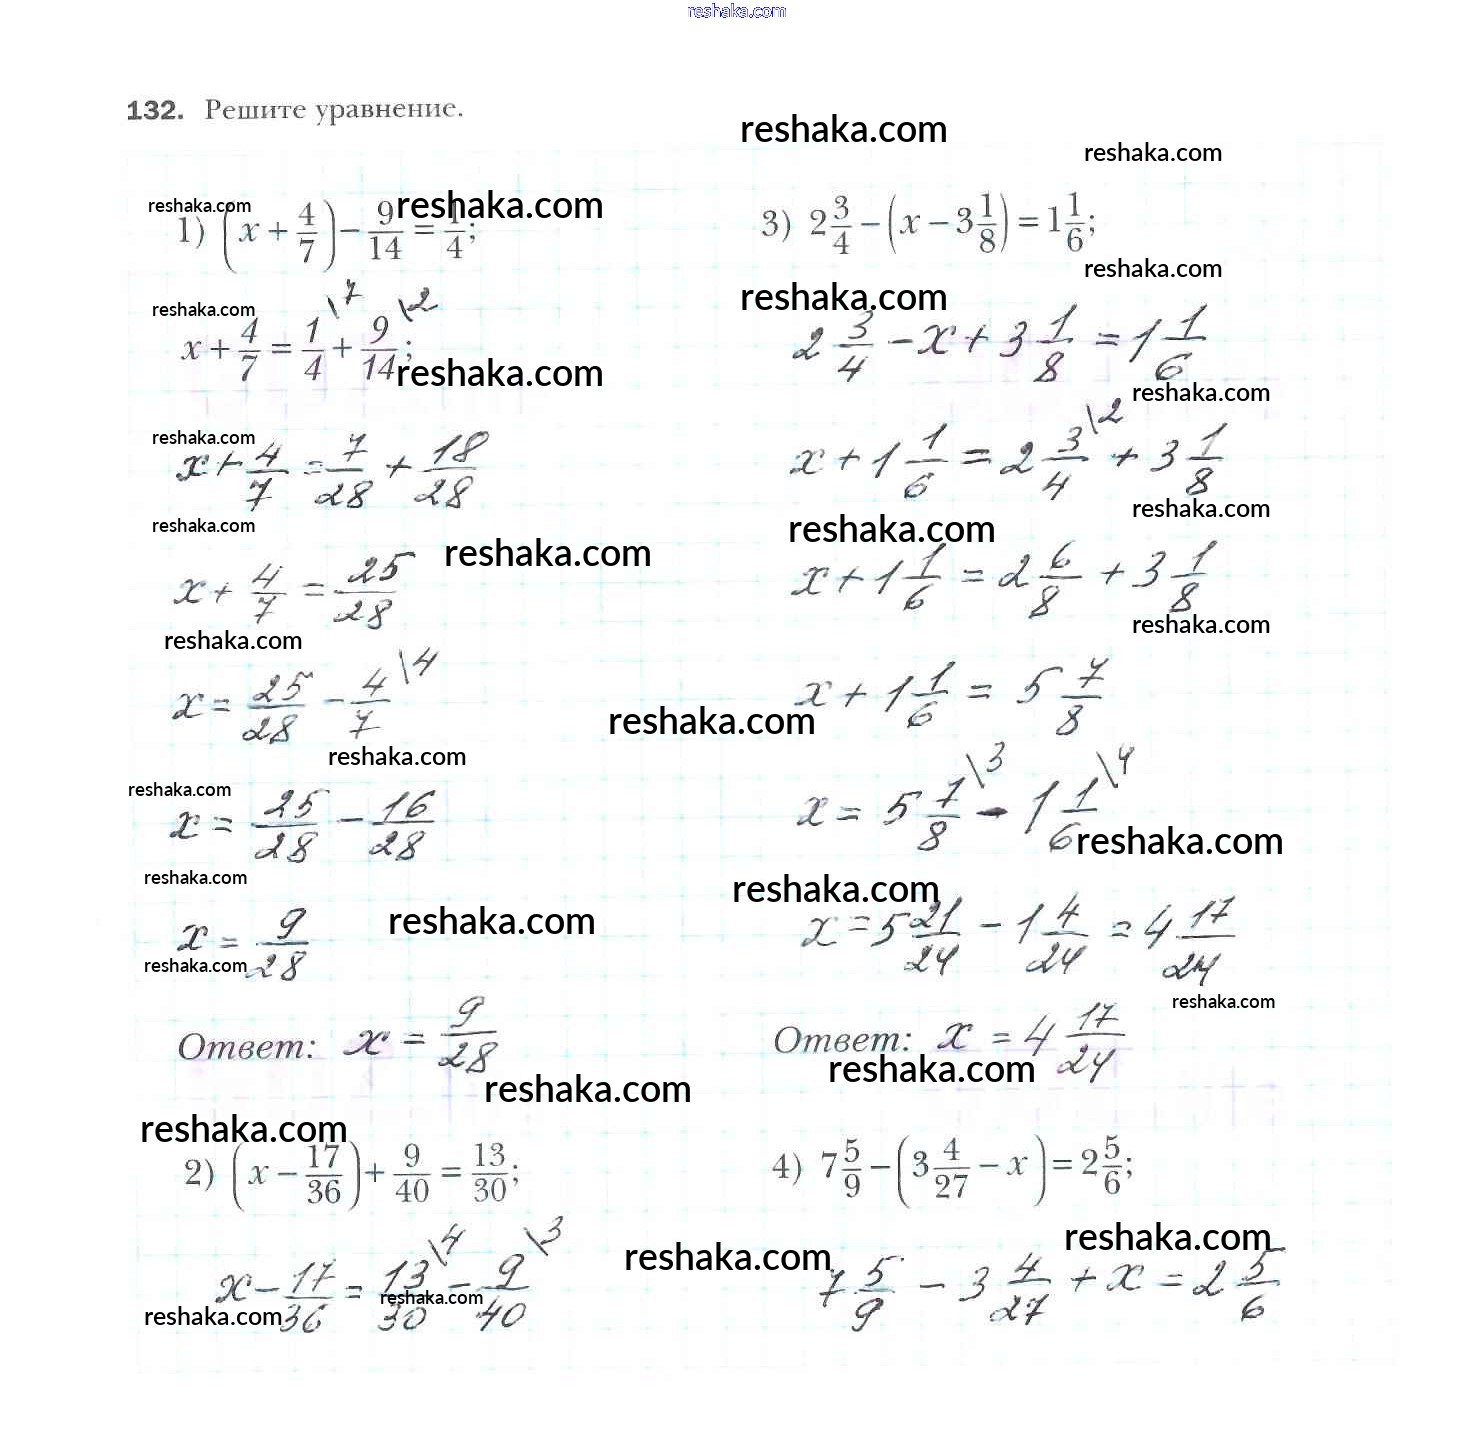 reshaka.com
132. Решите уравнение.
reshaka.com
reshaka.com
reshaka.com
reshaka.com
1) (x + 4/7) − 9/14 = 1/4;
reshaka.com
reshaka.com
x + 4/7 = 1/4 \7 + 9/14 \2;
reshaka.com
reshaka.com
x + 4/7 = 7/28 + 18/28
reshaka.com
reshaka.com
x + 4/7 = 25/28
reshaka.com
x = 25/28 − 4/7 \4
reshaka.com
reshaka.com
reshaka.com
x = 25/28 − 16/28
reshaka.com
reshaka.com
x = 9/28
reshaka.com
Ответ: x = 9/28
reshaka.com
reshaka.com
2) (x − 17/36) + 9/40 = 13/30;
x − 17/36 = 13/30 \4 − 9/40 \3
reshaka.com
reshaka.com
reshaka.com
3) 2 3/4 − (x − 3 1/8) = 1 1/6;
reshaka.com
reshaka.com
2 3/4 − x + 3 1/8 = 1 1/6
reshaka.com
x + 1 1/6 = 2 3/4 \2 + 3 1/8
reshaka.com
reshaka.com
x + 1 1/6 = 2 6/8 + 3 1/8
reshaka.com
x + 1 1/6 = 5 7/8
x = 5 7/8 \3 − 1 1/6 \4
reshaka.com
reshaka.com
x = 5 21/24 − 1 4/24 = 4 17/24
reshaka.com
Ответ: x = 4 17/24
reshaka.com
4) 7 5/9 − (3 4/27 − x) = 2 5/6;
reshaka.com
7 5/9 − 3 4/27 + x = 2 5/6